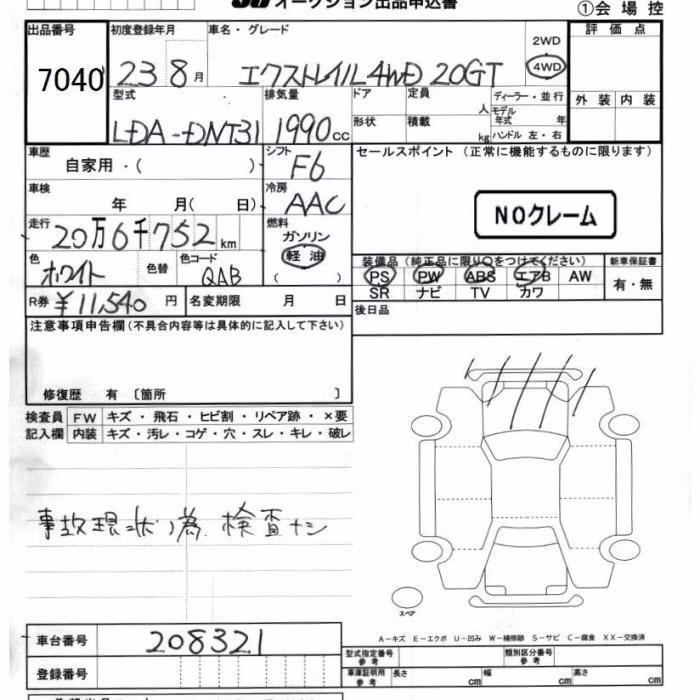 オークション出品申込書
①会場控
出品番号 7040
初度登録年月 23 8月
車名・グレード エクストレイル4WD 20GT
2WD
4WD
評価点
外装 内装
型式 LDA-DNT31
排気量 1990cc
ドア 定員 人 ディーラー・並行
形状 積載 kg モデル年式 年 ハンドル 左・右
車歴 自家用・( )
シフト F6
セールスポイント (正常に機能するものに限ります)
NOクレーム
車検 年 月( 日)
冷房 AAC
走行 20万6千752km
燃料 ガソリン 軽油 ( )
色 ホワイト 色替 色コード QAB
装備品(純正品に限り○をつけてください) 新車保証書
PS PW ABS エアB AW 有・無
SR ナビ TV カワ
R券 ¥11,540円 名変期限 月 日
後日品
注意事項申告欄(不具合内容等は具体的に記入して下さい)
修復歴 有 〔箇所 〕
検査員 FW キズ・飛石・ヒビ割・リペア跡・×要
記入欄 内装 キズ・汚レ・コゲ・穴・スレ・キレ・破レ
事故現状の為 検査ナシ
スペア
A-キズ E-エクボ U-凹み W-補修跡 S-サビ C-腐食 XX-交換済
車台番号 208321
登録番号
型式指定番号 参考 類別区分番号 参考
車庫証明用 参考 長さ cm 幅 cm 高さ cm